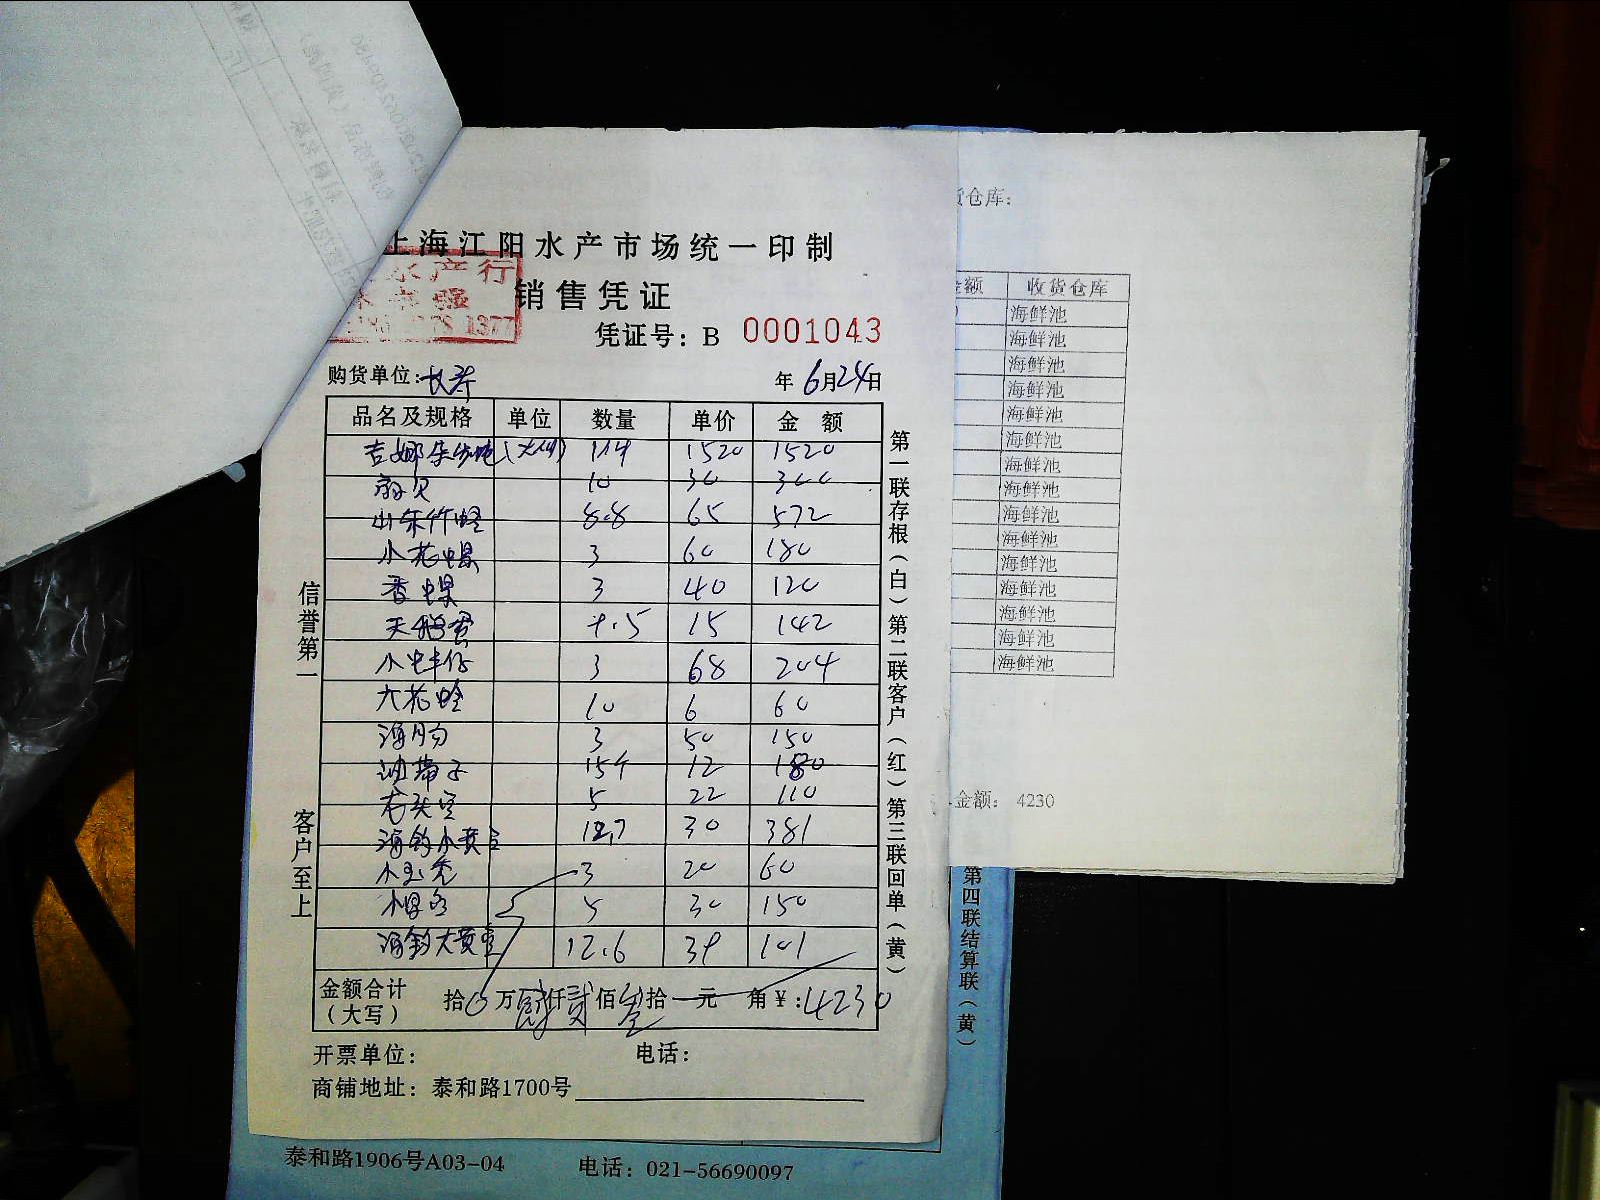 上海江阳水产市场统一印制
水产行
1377
销售凭证
凭证号：B 0001043
购货单位：长
年 6月24日
品名及规格 单位 数量 单价 金额
1520 1520
扇贝 10 30 300
山东竹蛏 8.8 65 572
小花螺 3 60 180
香螺 3 40 120
天鹅蛋 9.5 15 142
小 仔 3 68 204
大花蛤 10 6 60
海肠 3 50 150
15 12 180
龙头 5 22 110
海钓小黄 12.7 30 381
小 3 20 60
小 5 30 150
海钓大黄 12.6 101
金额合计（大写） 拾 0 万 肆 仟 贰 佰 叁 拾 元 角 ¥：4230
开票单位： 电话：
商铺地址：泰和路1700号
信誉第一
客户至上
第一联存根（白）第二联客户（红）第三联回单（黄）
货仓库：
金额 收货仓库
海鲜池
海鲜池
海鲜池
海鲜池
海鲜池
海鲜池
海鲜池
海鲜池
海鲜池
海鲜池
海鲜池
海鲜池
海鲜池
海鲜池
海鲜池
金额：4230
第四联结算联（黄）
泰和路1906号A03-04 电话：021-56690097